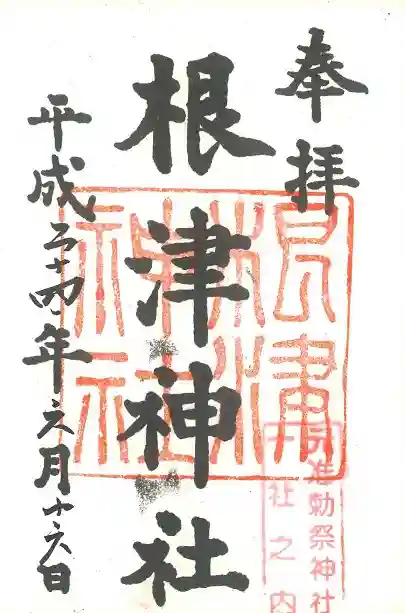 奉拝
根津神社
平成二十四年六月十六日
根津神社
元准勅祭神社
十社之内